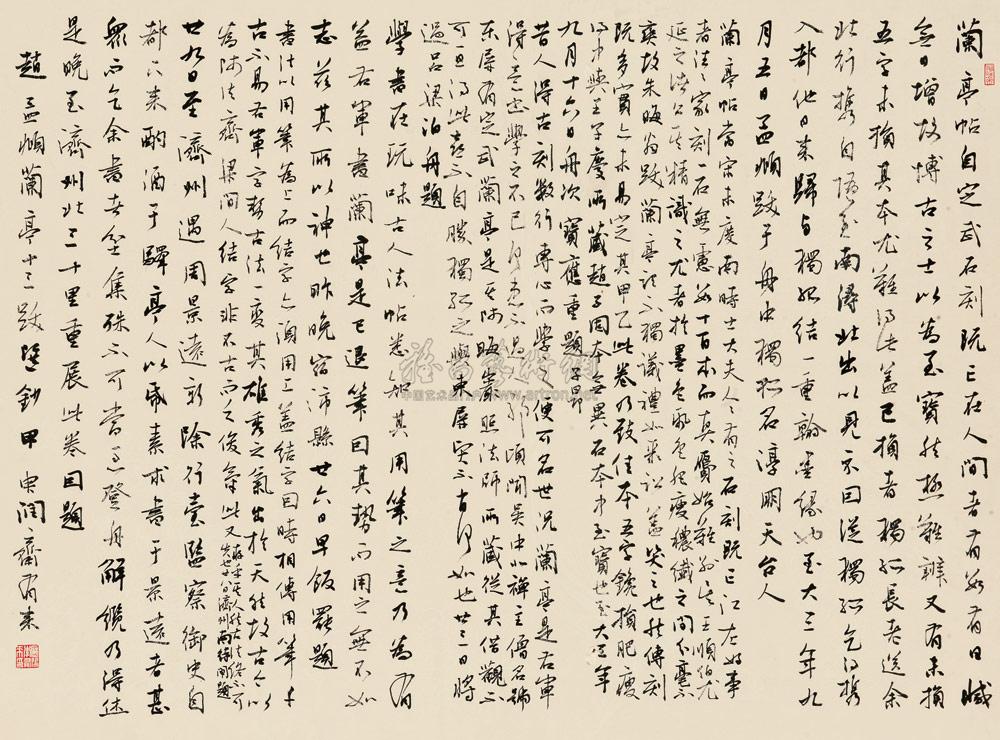 蘭亭帖自定武石刻既亡在人間者有數有日減
無日增故博古之士以為至寶然極難辨又有未損
五字未損其本尤難得此蓋已損者獨孤長老送余
北行攜自隨至南潯北出以見示因從獨孤乞得攜
入都他日來歸與獨孤結一重翰墨緣也至大三年九
月五日孟頫跋于舟中獨孤名淳朋天台人
蘭亭帖當宋未度南時士大夫人人有之石刻既亡江左好事
者往往家刻一石無慮數十百本而真贗始難別矣王順伯尤
延之諸公其精識之尤者於墨色紙色肥瘦穠纖之間分毫不
爽故朱晦翁跋蘭亭謂不獨議禮如聚訟蓋笑之也然傳刻
既多實亦未易定其甲乙此卷乃致佳本五字鑱損肥瘦
得中與王子慶所藏趙子固本無異石本中至寶也至大三年
九月十六日舟次寶應重題子昂
昔人得古刻數行專心而學之便可名世況蘭亭是右軍
得意書學之不已何患不過人耶頃聞吳中北禪主僧名
東屏有定武蘭亭是其師晦巖照法師所藏從其借觀不
可一旦得此喜不自勝獨孤之與東屏賢不肖何如也廿三日將
過呂梁泊舟題
學書在玩味古人法帖悉知其用筆之意乃為有
益右軍書蘭亭是已退筆因其勢而用之無不如
志茲其所以神也昨晚宿沛縣廿六日早飯罷題
書法以用筆為上而結字亦須用工蓋結字因時相傳用筆千
古不易右軍字勢古法一變其雄秀之氣出於天然故古今以
為師法齊梁間人結字非不古而乏俊氣此又
廿九日至濟州遇周景遠新除行臺監察御史自
都下來酌酒于驛亭人以紙素求書于景遠者甚
眾而乞余書者坌集殊不可當急登舟解纜乃得休
是晚至濟州北三十里重展此卷因題
趙孟頫蘭亭十三跋 鈔甲申潤齋有來